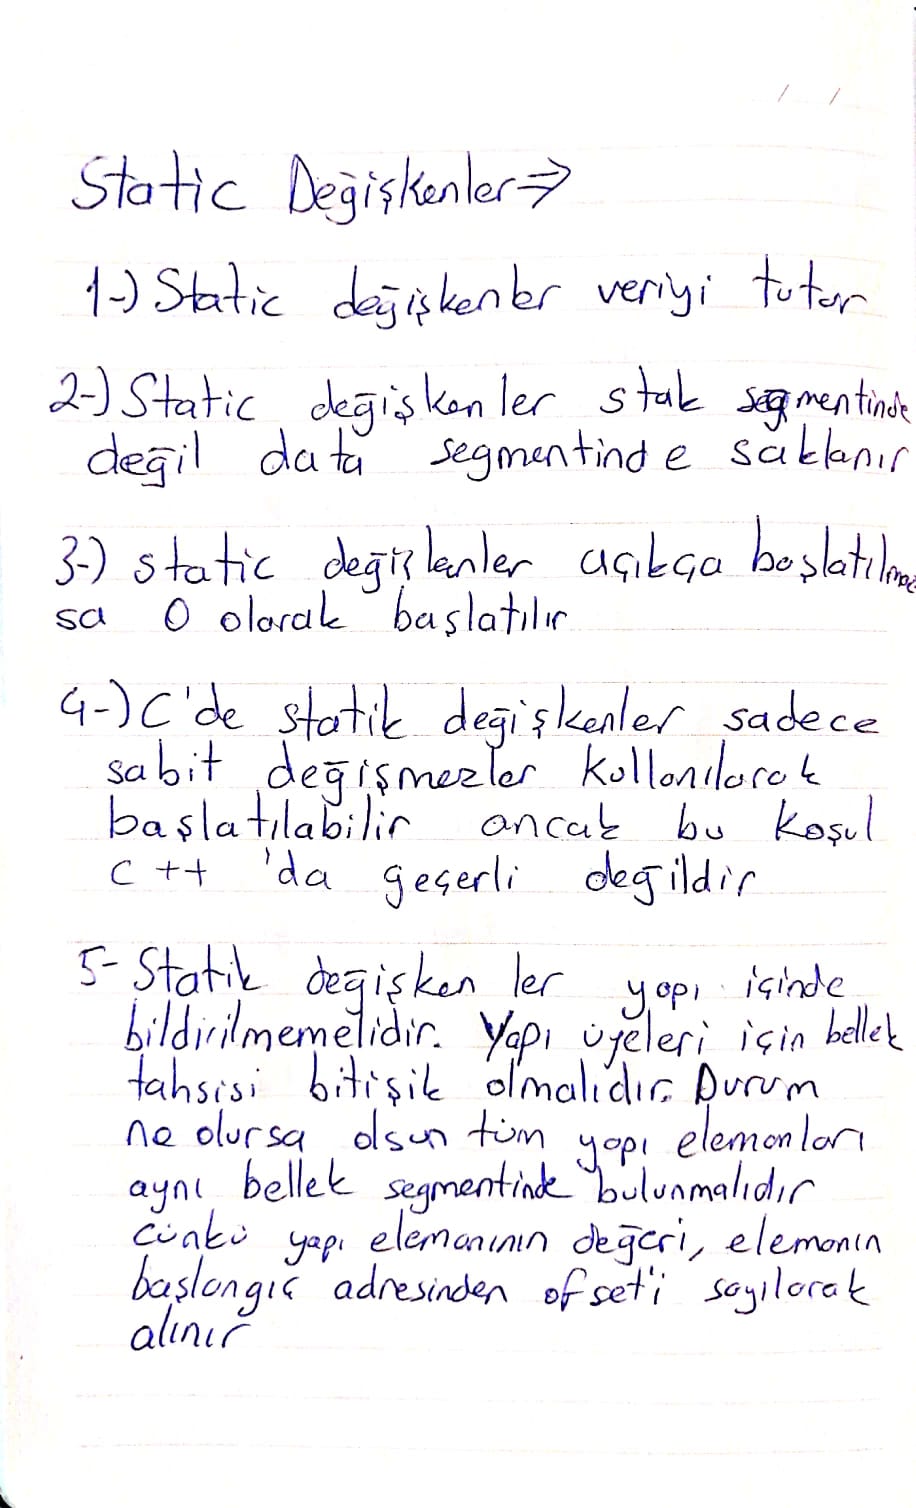 Static Değişkenler⇒
1-) Static değişkenler veriyi tutar
2-) Static değişkenler stak segmentinde
değil data segmentinde saklanır
3-) static değişkenler açıkça başlatılmaz
sa 0 olarak başlatılır
4-) C'de statik değişkenler sadece
sabit değişmezler kullanılarak
başlatılabilir ancak bu koşul
C++ 'da geçerli değildir
5- Statik değişkenler yapı içinde
bildirilmemelidir. Yapı üyeleri için bellek
tahsisi bitişik olmalıdır. Durum
ne olursa olsun tüm yapı elemanları
aynı bellek segmentinde bulunmalıdır
çünkü yapı elemanının değeri, elemanın
başlangıç adresinden ofset'i sayılarak
alınır